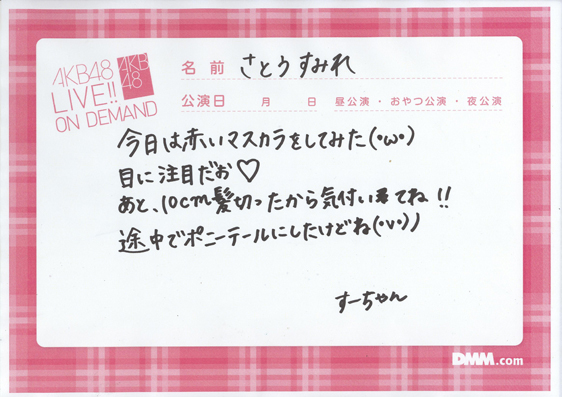 AKB48
LIVE!!
ON DEMAND
AKB
48
名前 さとうすみれ
公演日 月 日 昼公演・おやつ公演・夜公演
今日は赤いマスカラをしてみた(・ω・)
目に注目だお♡
あと、10cm髪切ったから気付いてね!!
途中でポニーテールにしたけどね(・v・))
すーちゃん
DMM.com